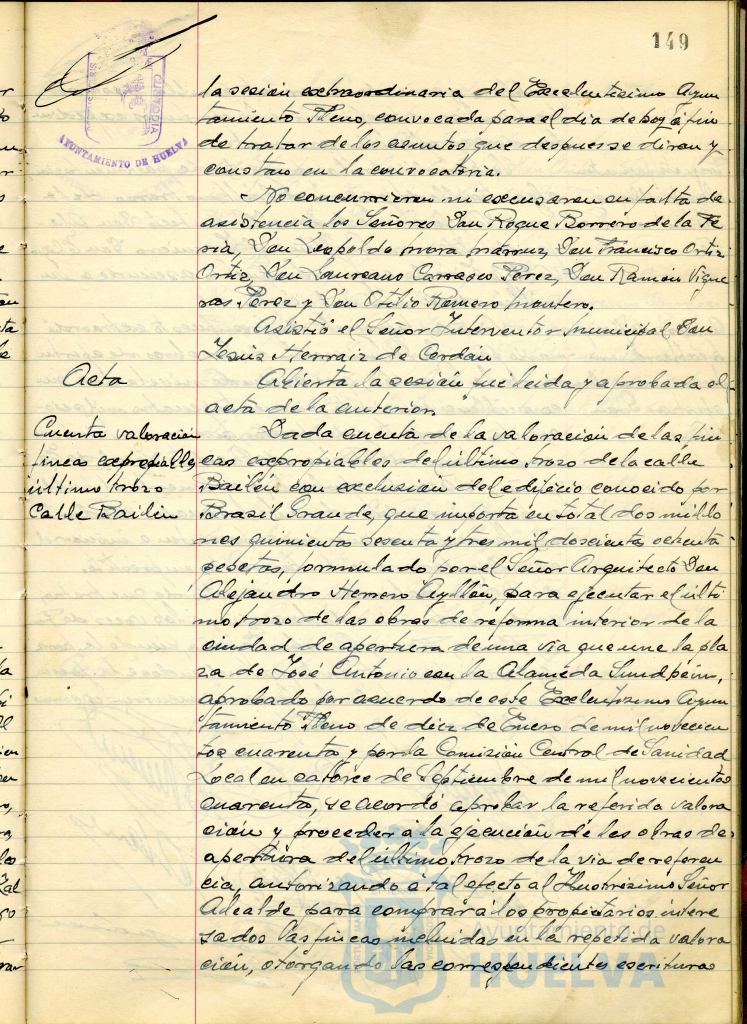 149
AYUNTAMIENTO DE HUELVA
la sesión extraordinaria del Excelentísimo Ayun
tamiento Pleno, convocada para el dia de hoy á fin
de tratar de los asuntos que despues se diran y
constan en la convocatoria.
No concurrieron ni excusaron su falta de
asistencia los Señores Don Roque Borrero de la Fe
ria, Don Leopoldo Mora Don Francisco Ortiz
Ortiz, Don Laureano Carrasco Perez, Don Ramón Vigue
ras Perez y Don Otilio Romero Montero.
Asistió el Señor Interventor Municipal Don
Jesús Herraiz de Cordán
Acta
Abierta la sesión fué leida y aprobada el
acta de la anterior.
Cuenta valoración
fincas expropiables
último trozo
Calle Bailén
Dada cuenta de la valoración de las fin
cas expropiables del último trozo de la calle
Bailén con exclusión del edificio conocido por
Brasil Grande, que importa en total dos millo
nes quinientas sesenta y tres mil doscientas ochenta
pesetas, formulado por el Señor Arquitecto Don
Alejandro Herrero Ayllón, para ejecutar el últi
mo trozo de las obras de reforma interior de la
ciudad de apertura de una via que une la pla
za de José Antonio con la Alameda Sundheim,
aprobado por acuerdo de este Excelentísimo Ayun
tamiento Pleno de diez de Enero de mil novecien
tos cuarenta y por la Comisión Central de Sanidad
Local en catorce de Septiembre de mil novecientos
cuarenta, se acordó aprobar la referida valora
ción y proceder á la ejecución de las obras de
apertura del último trozo de la via de referen
cia, autorizando á tal efecto al Ilustrísimo Señor
Alcalde para comprar á los propietarios intere
sados las fincas incluidas en la repetida valora
ción, otorgando las correspondientes escrituras
Ayuntamiento de
HUELVA